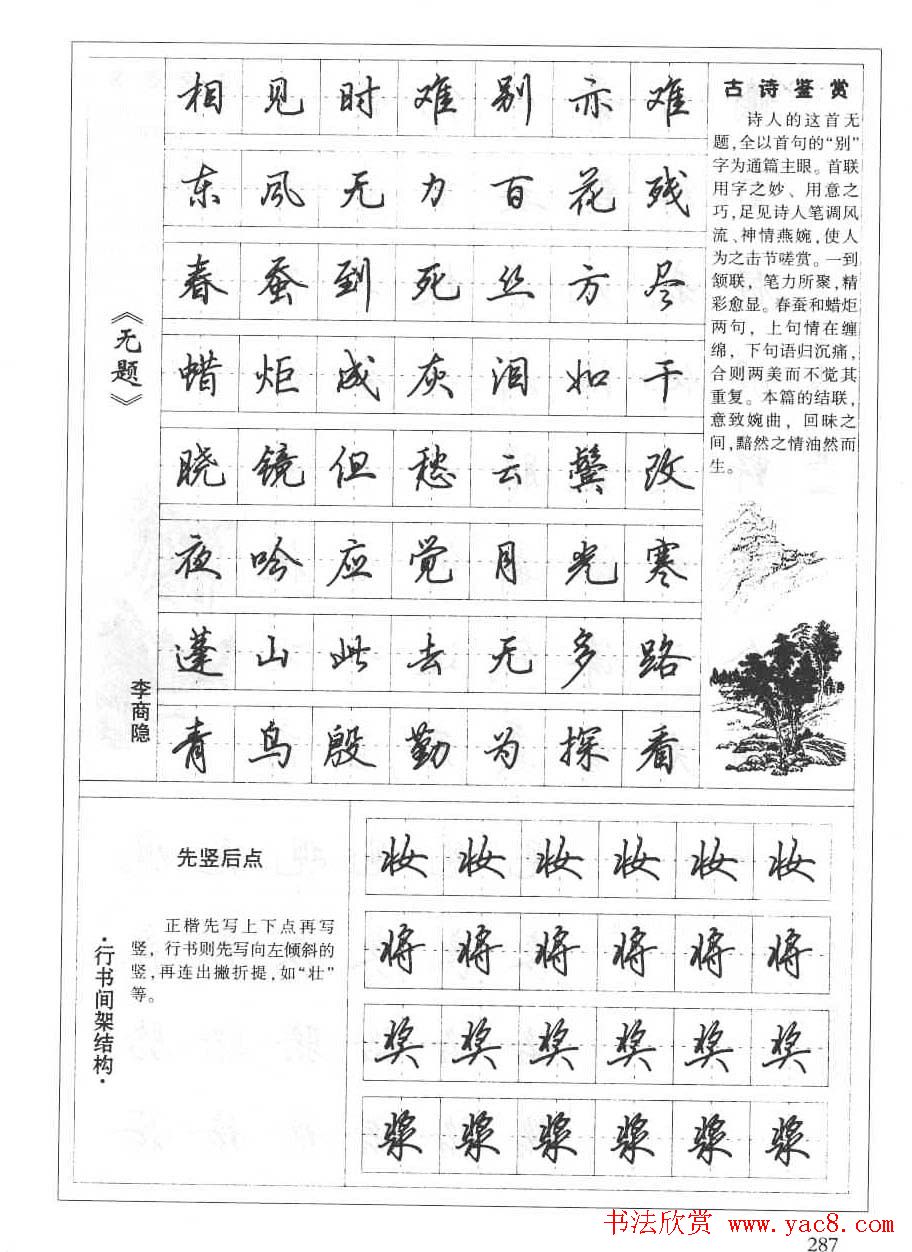 《无题》
李商隐
相见时难别亦难
东风无力百花残
春蚕到死丝方尽
蜡炬成灰泪如干
晓镜但愁云鬓改
夜吟应觉月光寒
蓬山此去无多路
青鸟殷勤为探看
古诗鉴赏
诗人的这首无
题,全以首句的“别”
字为通篇主眼。首联
用字之妙、用意之
巧,足见诗人笔调风
流、神情燕婉,使人
为之击节嗟赏。一到
颔联，笔力所聚,精
彩愈显。春蚕和蜡炬
两句，上句情在缠
绵，下句语归沉痛,
合则两美而不觉其
重复。本篇的结联,
意致婉曲，回味之
间,黯然之情油然而
生。
·行书间架结构·
先竖后点
正楷先写上下点再写
竖，行书则先写向左倾斜的
竖,再连出撇折提,如“壮”
等。
妆妆妆妆妆妆
将将将将将将
奖奖奖奖奖奖
浆浆浆浆浆浆
书法欣赏 www.yac8.com
287